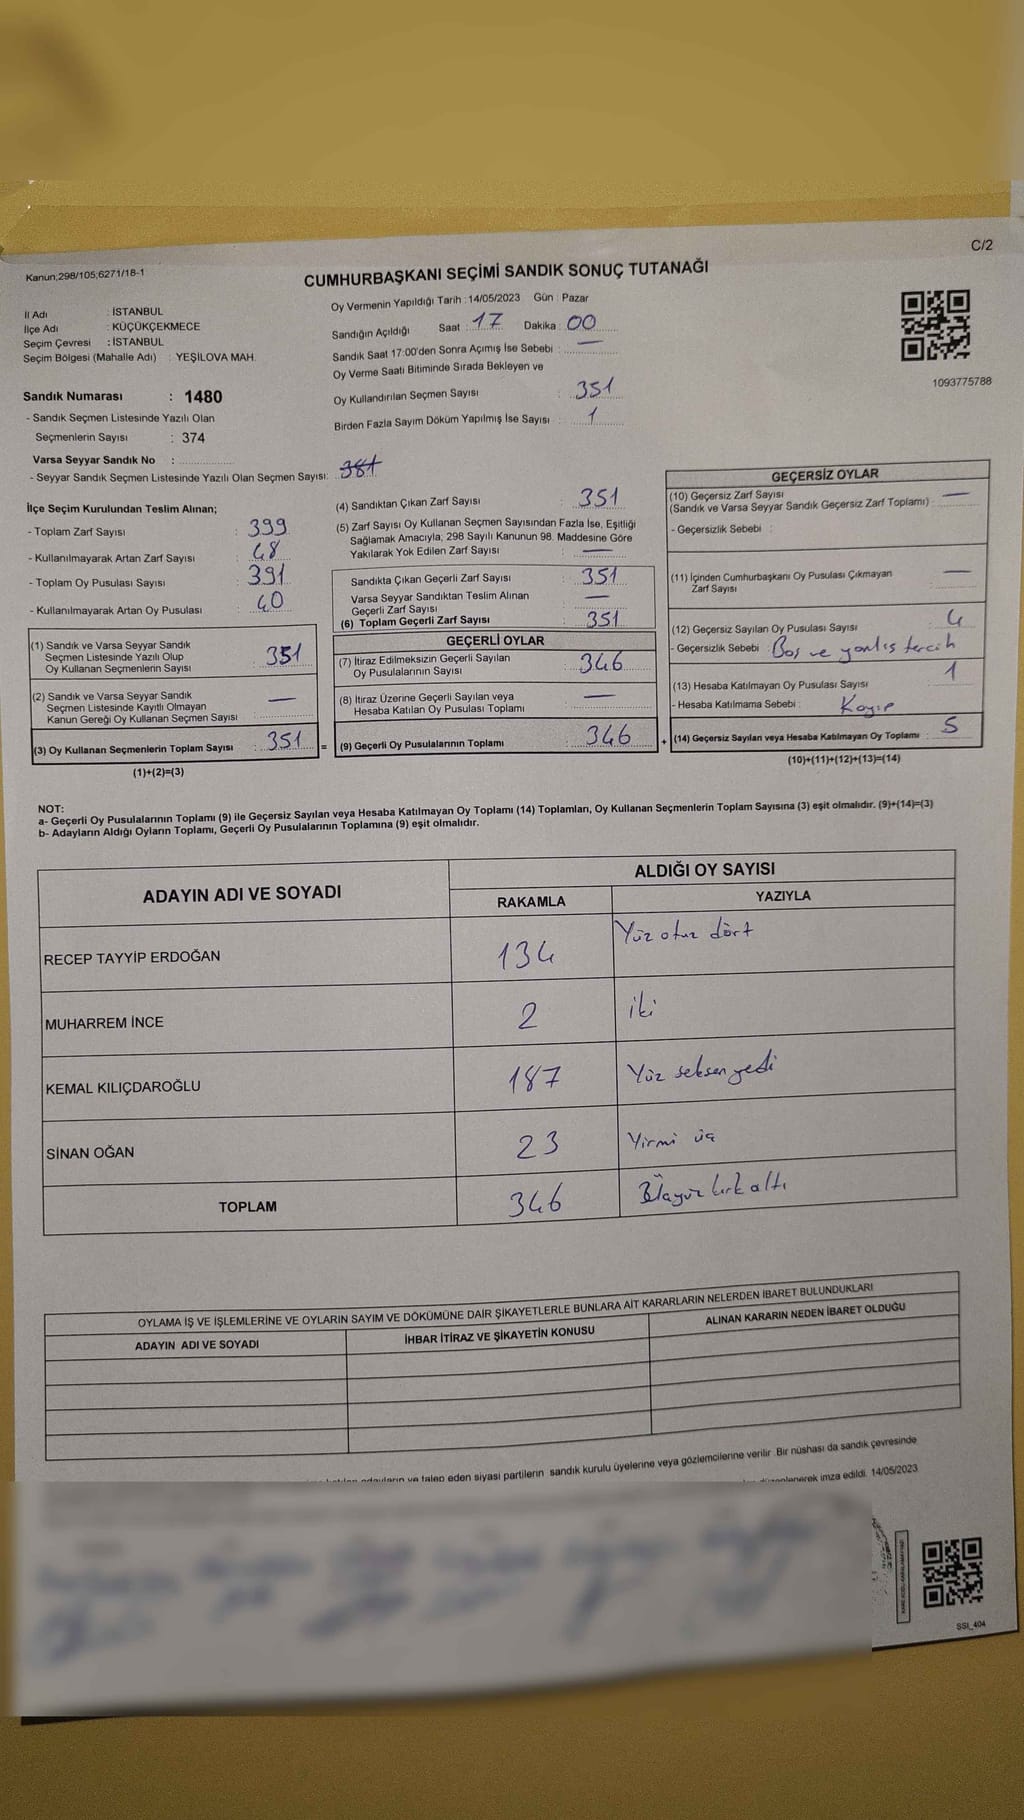 C/2
Kanun;298/105;6271/18-1
CUMHURBAŞKANI SEÇİMİ SANDIK SONUÇ TUTANAĞI
İl Adı : İSTANBUL
İlçe Adı : KÜÇÜKÇEKMECE
Seçim Çevresi : İSTANBUL
Seçim Bölgesi (Mahalle Adı) : YEŞİLOVA MAH.
Sandık Numarası : 1480
- Sandık Seçmen Listesinde Yazılı Olan
Seçmenlerin Sayısı : 374
Varsa Seyyar Sandık No :
- Seyyar Sandık Seçmen Listesinde Yazılı Olan Seçmen Sayısı:
Oy Vermenin Yapıldığı Tarih : 14/05/2023 Gün : Pazar
Sandığın Açıldığı Saat : 17 Dakika : 00
Sandık Saat 17:00'den Sonra Açımış İse Sebebi : —
Oy Verme Saati Bitiminde Sırada Bekleyen ve
Oy Kullandırılan Seçmen Sayısı : 351
Birden Fazla Sayım Döküm Yapılmış İse Sayısı : 1
1093775788
İlçe Seçim Kurulundan Teslim Alınan;
- Toplam Zarf Sayısı : 399
- Kullanılmayarak Artan Zarf Sayısı : 48
- Toplam Oy Pusulası Sayısı : 391
- Kullanılmayarak Artan Oy Pusulası : 40
(1) Sandık ve Varsa Seyyar Sandık
Seçmen Listesinde Yazılı Olup
Oy Kullanan Seçmenlerin Sayısı : 351
(2) Sandık ve Varsa Seyyar Sandık
Seçmen Listesinde Kayıtlı Olmayan
Kanun Gereği Oy Kullanan Seçmen Sayısı : —
(3) Oy Kullanan Seçmenlerin Toplam Sayısı : 351 =
(1)+(2)=(3)
(4) Sandıktan Çıkan Zarf Sayısı : 351
(5) Zarf Sayısı Oy Kullanan Seçmen Sayısından Fazla İse, Eşitliği
Sağlamak Amacıyla; 298 Sayılı Kanunun 98. Maddesine Göre
Yakılarak Yok Edilen Zarf Sayısı : —
Sandıkta Çıkan Geçerli Zarf Sayısı : 351
Varsa Seyyar Sandıktan Teslim Alınan
Geçerli Zarf Sayısı : —
(6) Toplam Geçerli Zarf Sayısı : 351
GEÇERLİ OYLAR
(7) İtiraz Edilmeksizin Geçerli Sayılan
Oy Pusulalarının Sayısı : 346
(8) İtiraz Üzerine Geçerli Sayılan veya
Hesaba Katılan Oy Pusulası Toplamı : —
(9) Geçerli Oy Pusulalarının Toplamı : 346 +
GEÇERSİZ OYLAR
(10) Geçersiz Zarf Sayısı
(Sandık ve Varsa Seyyar Sandık Geçersiz Zarf Toplamı) : —
- Geçersizlik Sebebi :
(11) İçinden Cumhurbaşkanı Oy Pusulası Çıkmayan
Zarf Sayısı : —
(12) Geçersiz Sayılan Oy Pusulası Sayısı : 4
- Geçersizlik Sebebi : Boş ve yanlış tercih
(13) Hesaba Katılmayan Oy Pusulası Sayısı : 1
- Hesaba Katılmama Sebebi : Kayıp
(14) Geçersiz Sayılan veya Hesaba Katılmayan Oy Toplamı : 5
(10)+(11)+(12)+(13)=(14)
NOT:
a- Geçerli Oy Pusulalarının Toplamı (9) ile Geçersiz Sayılan veya Hesaba Katılmayan Oy Toplamı (14) Toplamları, Oy Kullanan Seçmenlerin Toplam Sayısına (3) eşit olmalıdır. (9)+(14)=(3)
b- Adayların Aldığı Oyların Toplamı, Geçerli Oy Pusulalarının Toplamına (9) eşit olmalıdır.
ADAYIN ADI VE SOYADI
ALDIĞI OY SAYISI
RAKAMLA YAZIYLA
RECEP TAYYİP ERDOĞAN 134 Yüz otuz dört
MUHARREM İNCE 2 iki
KEMAL KILIÇDAROĞLU 187 Yüz seksen yedi
SİNAN OĞAN 23 Yirmi üç
TOPLAM 346 Üçyüz kırk altı
OYLAMA İŞ VE İŞLEMLERİNE VE OYLARIN SAYIM VE DÖKÜMÜNE DAİR ŞİKAYETLERLE BUNLARA AİT KARARLARIN NELERDEN İBARET BULUNDUKLARI
ADAYIN ADI VE SOYADI İHBAR İTİRAZ VE ŞİKAYETİN KONUSU ALINAN KARARIN NEDEN İBARET OLDUĞU
adayların ve talep eden siyasi partilerin sandık kurulu üyelerine veya gözlemcilerine verilir. Bir nüshası da sandık çevresinde
düzenlenerek imza edildi. 14/05/2023
SSI_404